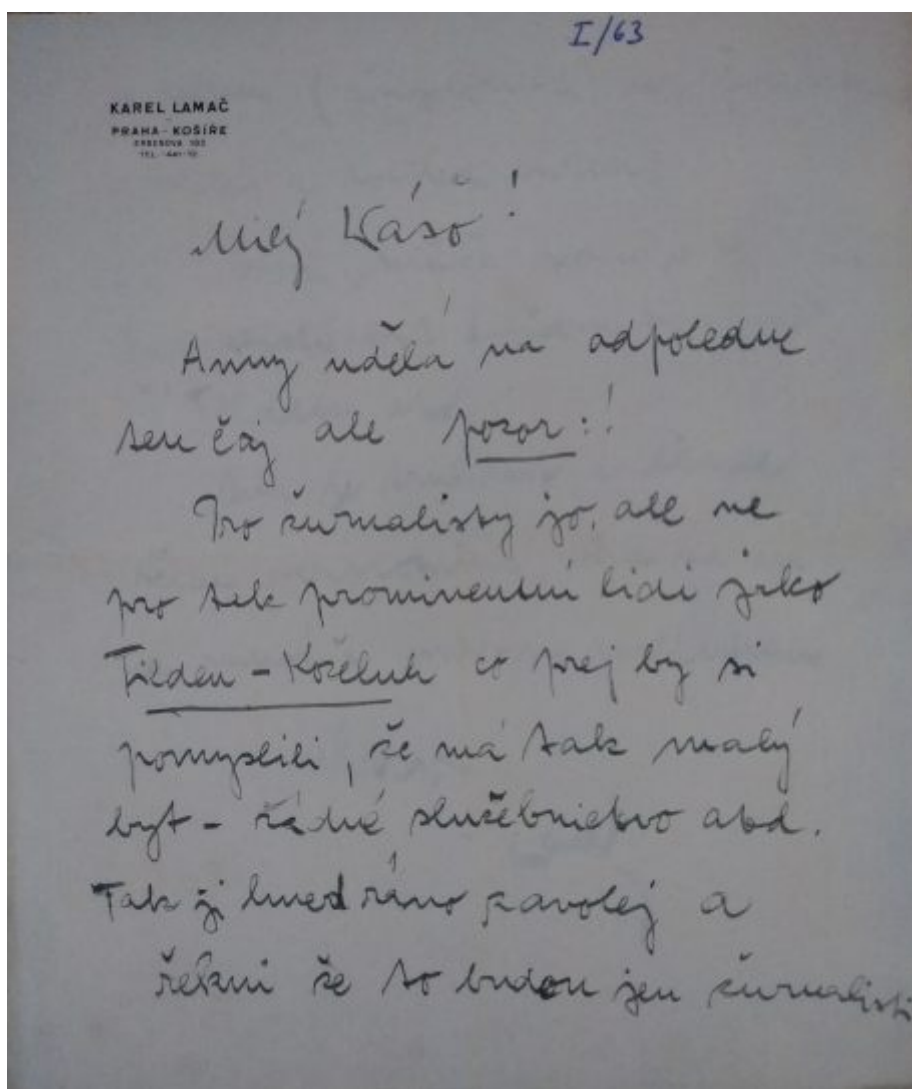 I/63
KAREL LAMAČ
PRAHA-KOŠÍŘE
Milý Wášo!
Anny udělá na odpoledne
ten čaj ale pozor:!
Pro žurnalisty jo, ale ne
pro tak prominentní lidi jako
Tilden - Koželuh co prej by si
pomyslili, že má tak malý
byt - žádné služebnictvo atd.
Tak jí hned ráno zavolej a
řekni že to budou jen žurnalisti